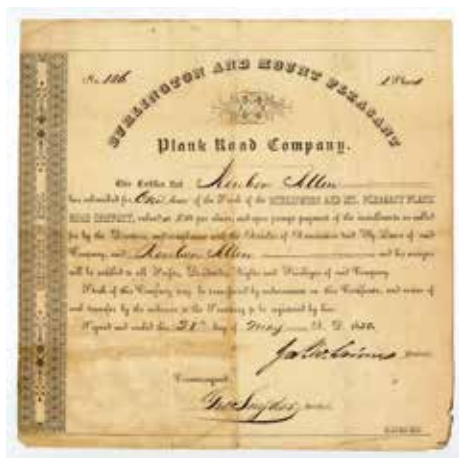 No. 186 1 Share
BURLINGTON AND MOUNT PLEASANT
Plank Road Company.
This Certifies that Reuben Allen
has subscribed for One share of the Stock of the BURLINGTON AND MT. PLEASANT PLANK
ROAD COMPANY, valued at $50 per share, and upon prompt payment of the installments as called
for by the Directors, and compliance with the Articles of Association and By-Laws of said
Company, said Reuben Allen and his assigns
will be entitled to all Profits, Dividends, Rights and Privileges of said Company.
Stock of this Company may be transferred by endorsement on this Certificate, and notice of
said transfer by the endorser to the Secretary to be registered by him.
Signed and sealed this day of May A. D. 1850.
Countersigned